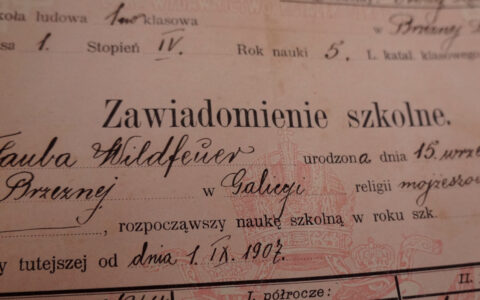 koła ludowa 1no klasowa
w Brzeznej
sa 1. Stopień IV. Rok nauki 5. L. katal. klasowego
Zawiadomienie szkolne.
Tauba Wildfeuer urodzona dnia 15. wrze
Brzeznej w Galicyi religii mojżeszo
, rozpocząwszy naukę szkolną w roku szk.
y tutejszej od dnia 1. IX. 1907.
I. półrocze: II.